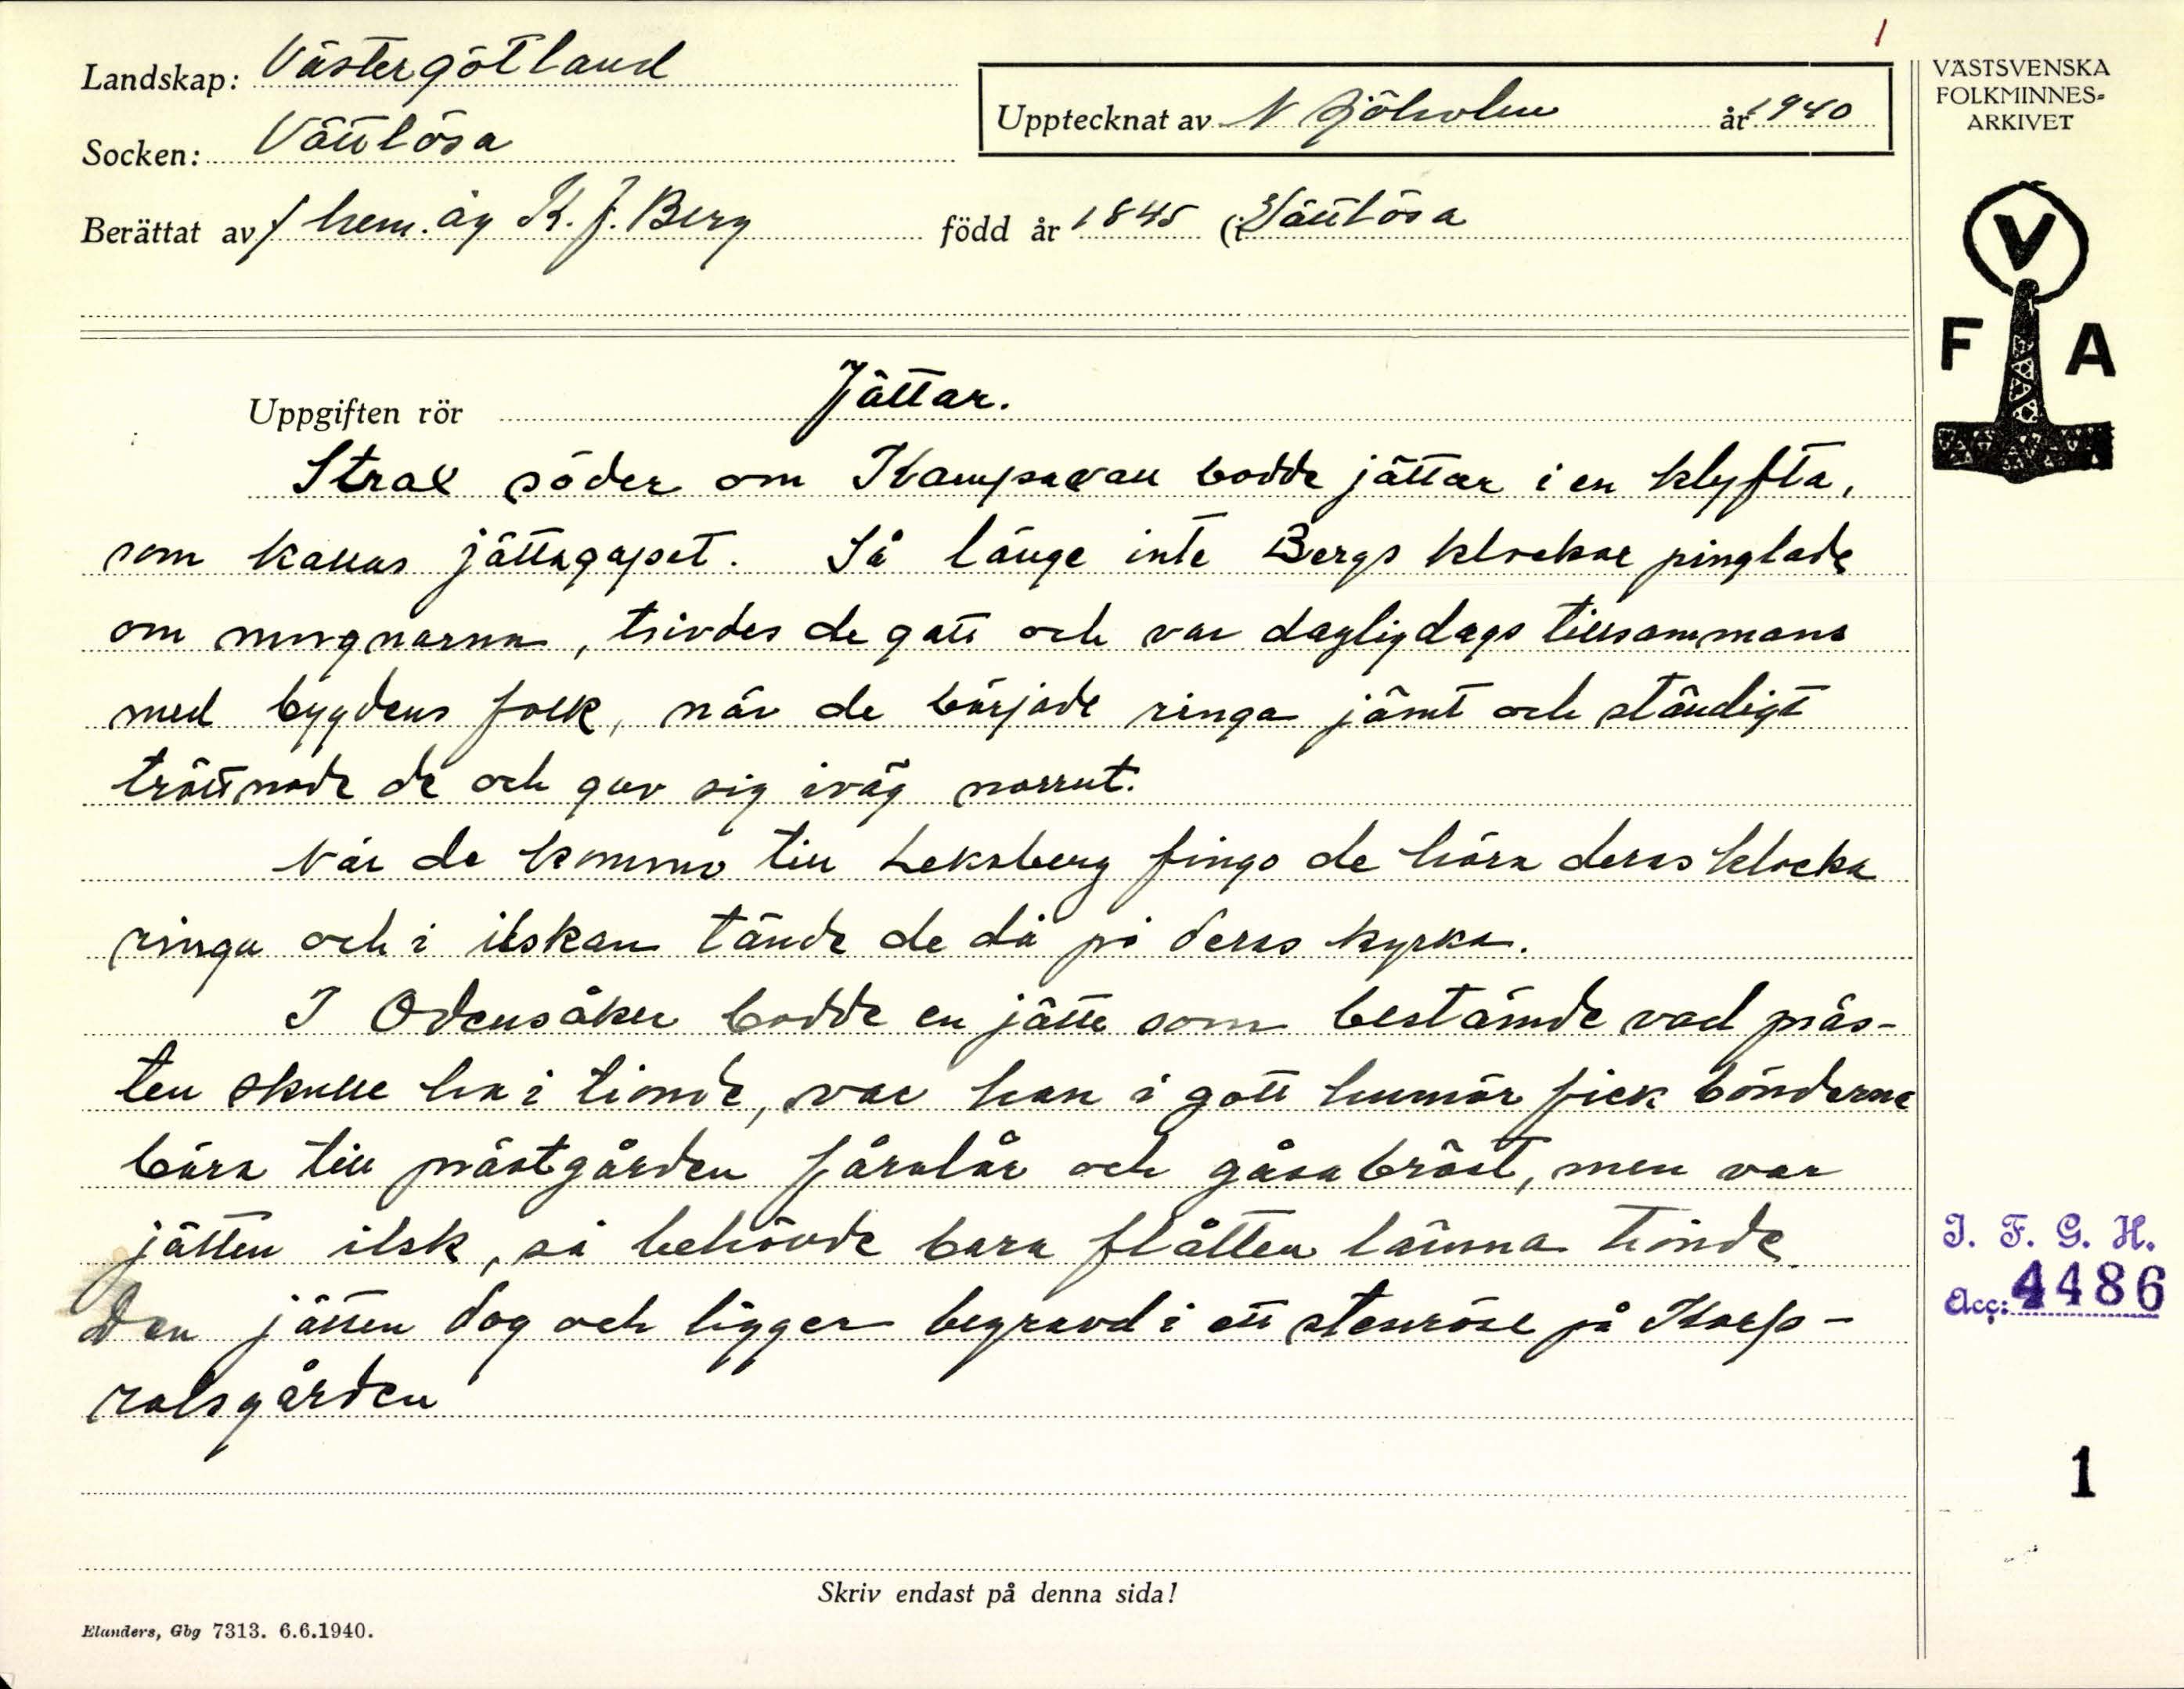 1
Landskap: Västergötland
Socken: Vättlösa
Upptecknat av N Sjöholm år 1940
Berättat av f hem. äg K. J. Berg född år 1845 i Vättlösa
VÄSTSVENSKA
FOLKMINNES-
ARKIVET
V
F A
Uppgiften rör Jättar.
Strax söder om bodde jättar i en klyfta,
som kallas jättagapet. Så länge inte Bergs klockor pinglade
om morgnarna, trivdes de gott och var dagligdags tillsammans
med bygdens folk, när de började ringa jämt och ständigt
tröttnade de och gav sig iväg norrut.
När de kommo till Leksberg fingo de höra deras klocka
ringa och i ilskan tände de då på deras kyrka.
I Odensåker bodde en jätte som bestämde vad präs-
ten skulle ha i tionde, var han i gott humör fick bönderna
bära till prästgården fåralår och gåsabröst, men var
jätten ilsk, så behövde bara flåtten lämna tionde
Den jätten dog och ligger begravd i ett stenröse på Korp-
ralsgården
J. F. G. H.
Acc: 4486
1
Skriv endast på denna sida!
Elanders, Gbg 7313. 6.6.1940.